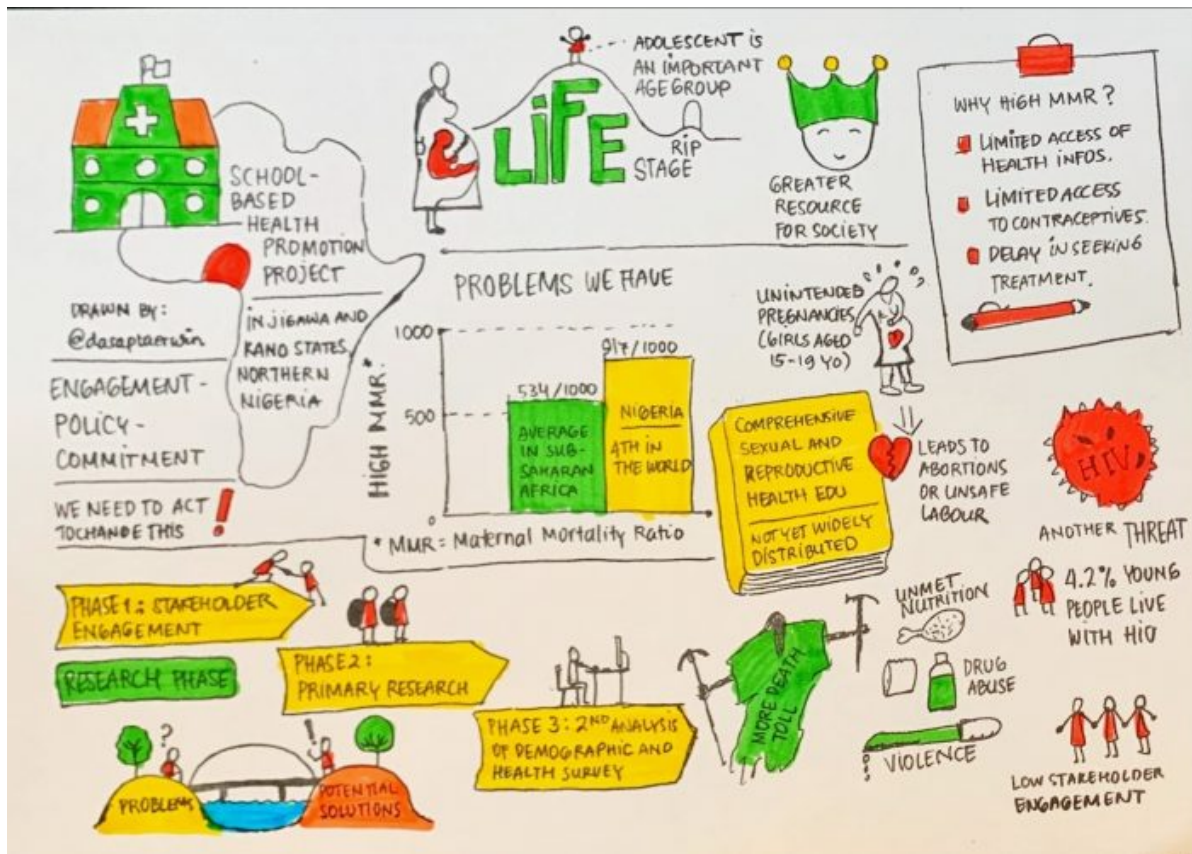 SCHOOL-
BASED
HEALTH
PROMOTION
PROJECT
IN JIGAWA AND
KANO STATES,
NORTHERN
NIGERIA
DRAWN BY:
@dasaptaerwin
ENGAGEMENT-
POLICY-
COMMITMENT
WE NEED TO ACT
TO CHANGE THIS !
ADOLESCENT IS
AN IMPORTANT
AGE GROUP
LIFE
STAGE
RIP
GREATER
RESOURCE
FOR SOCIETY
WHY HIGH MMR?
LIMITED ACCESS OF
HEALTH INFOS.
LIMITED ACCESS
TO CONTRACEPTIVES.
DELAY IN SEEKING
TREATMENT.
PROBLEMS WE HAVE
HIGH MMR.*
1000
500
0
534/1000
AVERAGE
IN SUB-
SAHARAN
AFRICA
917/1000
NIGERIA
4TH IN
THE WORLD
* MMR = Maternal Mortality Ratio
UNINTENDED
PREGNANCIES
(GIRLS AGED
15-19 YO)
LEADS TO
ABORTIONS
OR UNSAFE
LABOUR
COMPREHENSIVE
SEXUAL AND
REPRODUCTIVE
HEALTH EDU
NOT YET WIDELY
DISTRIBUTED
HIV
ANOTHER THREAT
4.2% YOUNG
PEOPLE LIVE
WITH HIV
PHASE 1: STAKEHOLDER
ENGAGEMENT
RESEARCH PHASE
PHASE 2:
PRIMARY RESEARCH
PHASE 3: 2ND ANALYSIS
OF DEMOGRAPHIC AND
HEALTH SURVEY
?
!
PROBLEMS
POTENTIAL
SOLUTIONS
MORE DEATH
TOLL
UNMET
NUTRITION
DRUG
ABUSE
VIOLENCE
LOW STAKEHOLDER
ENGAGEMENT